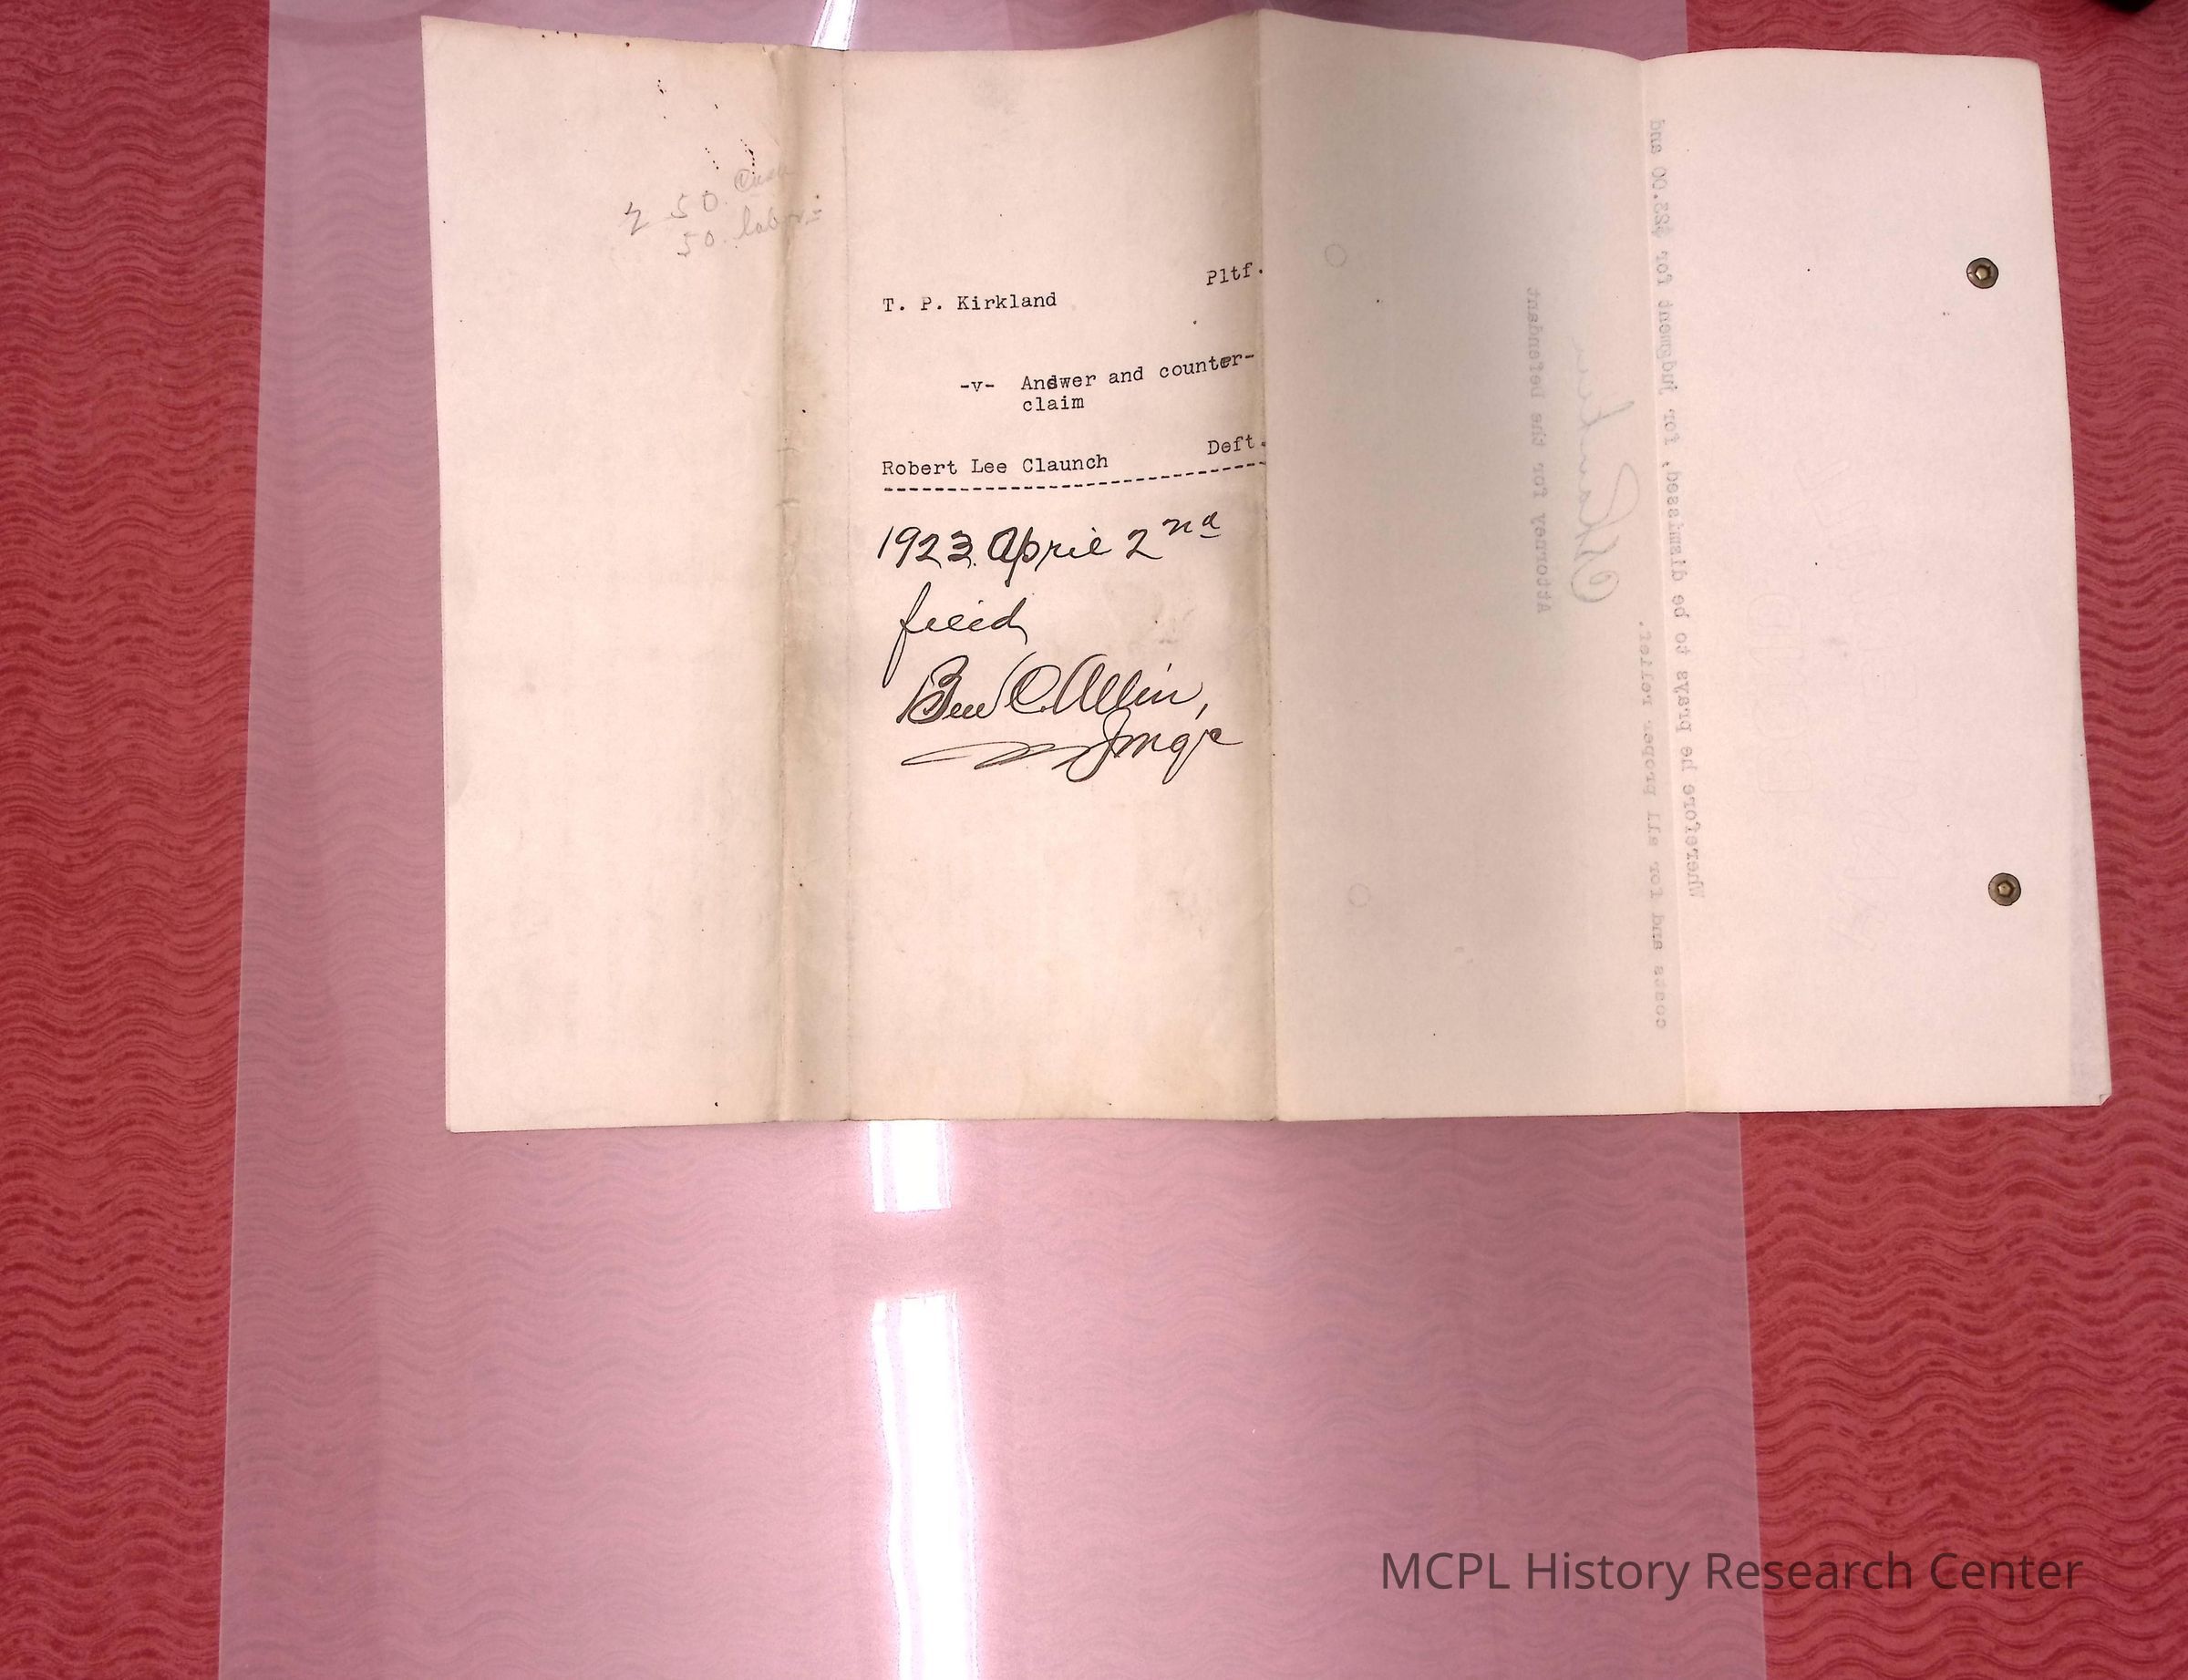 2 50. Cash
50. labor=
Pltf.
T. P. Kirkland
-v- Andwer and counter-
claim
Deft.
Robert Lee Claunch
1923. April 2nd
filed
Ben C. Allin,
Jmgr
Wherefore he prays to be dismissed, for judgment for $25.00 and
costs and for all proper relief.
Attorney for the Defendant
MCPL History Research Center